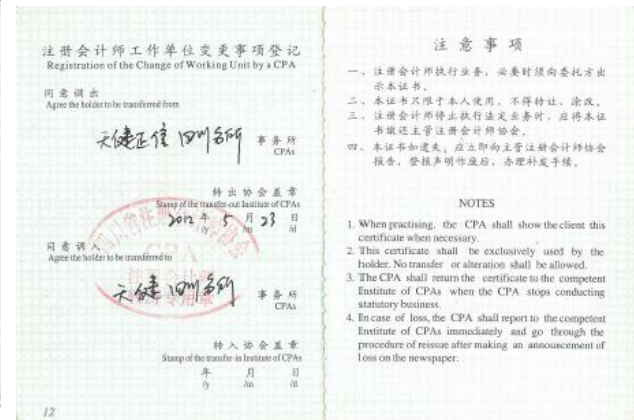 注册会计师工作单位变更事项登记
Registration of the Change of Working Unit by a CPA
同意调出
Agree the holder to be transferred from
天健正信四川分所 事务所
CPAs
转出协会盖章
Stamp of the transfer-out Institute of CPAs
2012年 5月 23日
/y /m /d
同意调入
Agree the holder to be transferred to
天健四川分所 事务所
CPAs
转入协会盖章
Stamp of the transfer-in Institute of CPAs
年 月 日
/y /m /d
12
注意事项
一、注册会计师执行业务，必要时须向委托方出
示本证书。
二、本证书只限于本人使用，不得转让、涂改。
三、注册会计师停止执行法定业务时，应将本证
书缴还主管注册会计师协会。
四、本证书如遗失，应立即向主管注册会计师协会
报告，登报声明作废后，办理补发手续。
NOTES
1. When practising, the CPA shall show the client this
certificate when necessary.
2. This certificate shall be exclusively used by the
holder. No transfer or alteration shall be allowed.
3. The CPA shall return the certificate to the competent
Institute of CPAs when the CPA stops conducting
statutory business.
4. In case of loss, the CPA shall report to the competent
Institute of CPAs immediately and go through the
procedure of reissue after making an announcement of
loss on the newspaper.